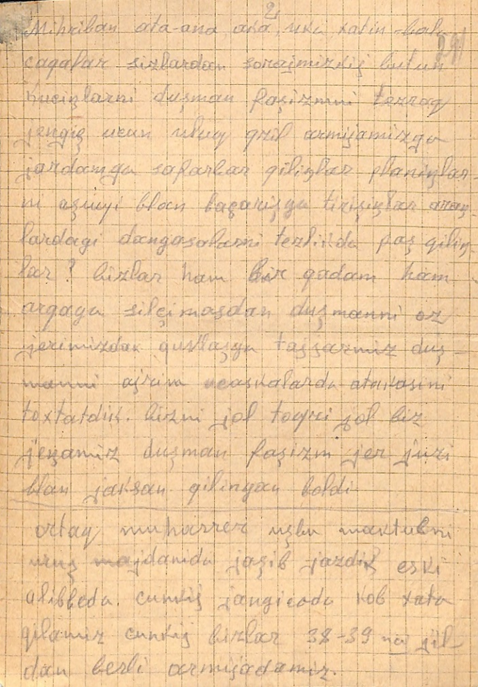 2
291
Mihriban ata-ana, aka, uki xatin-bala
caqalar sizlardan sorajmizkiş butun
kuciŋlarni duşman faşizmni tezraq
jengiş ucun uluq qzil armijamizga
jardamga safarbar qiliŋlar planiŋlar-
ni aşuvi blan başarişga tirişiŋlar araŋ
lardagi dangasalarni tezlikda faş qiliŋ
lar? bizlar ham bir qadam ham
arqaga silçimasdan duşmanni oz
jerimizdan quvlaşga tajjarmiz duş-
manni ajrim ucaskalarda atakasini
toxtatdik. bizni jol togri jol biz
jeŋamiz duşman faşizm jer juzi
blan jaksan qilingan boldi
ortaq muharrer uşbu maktubni
uruş majdanida jazib jazdik eski
alibbeda. cunkiş jangicada kob xata
qilamiz cunkiş bizlar 38-39 nci jil
dan berli armijadamiz.